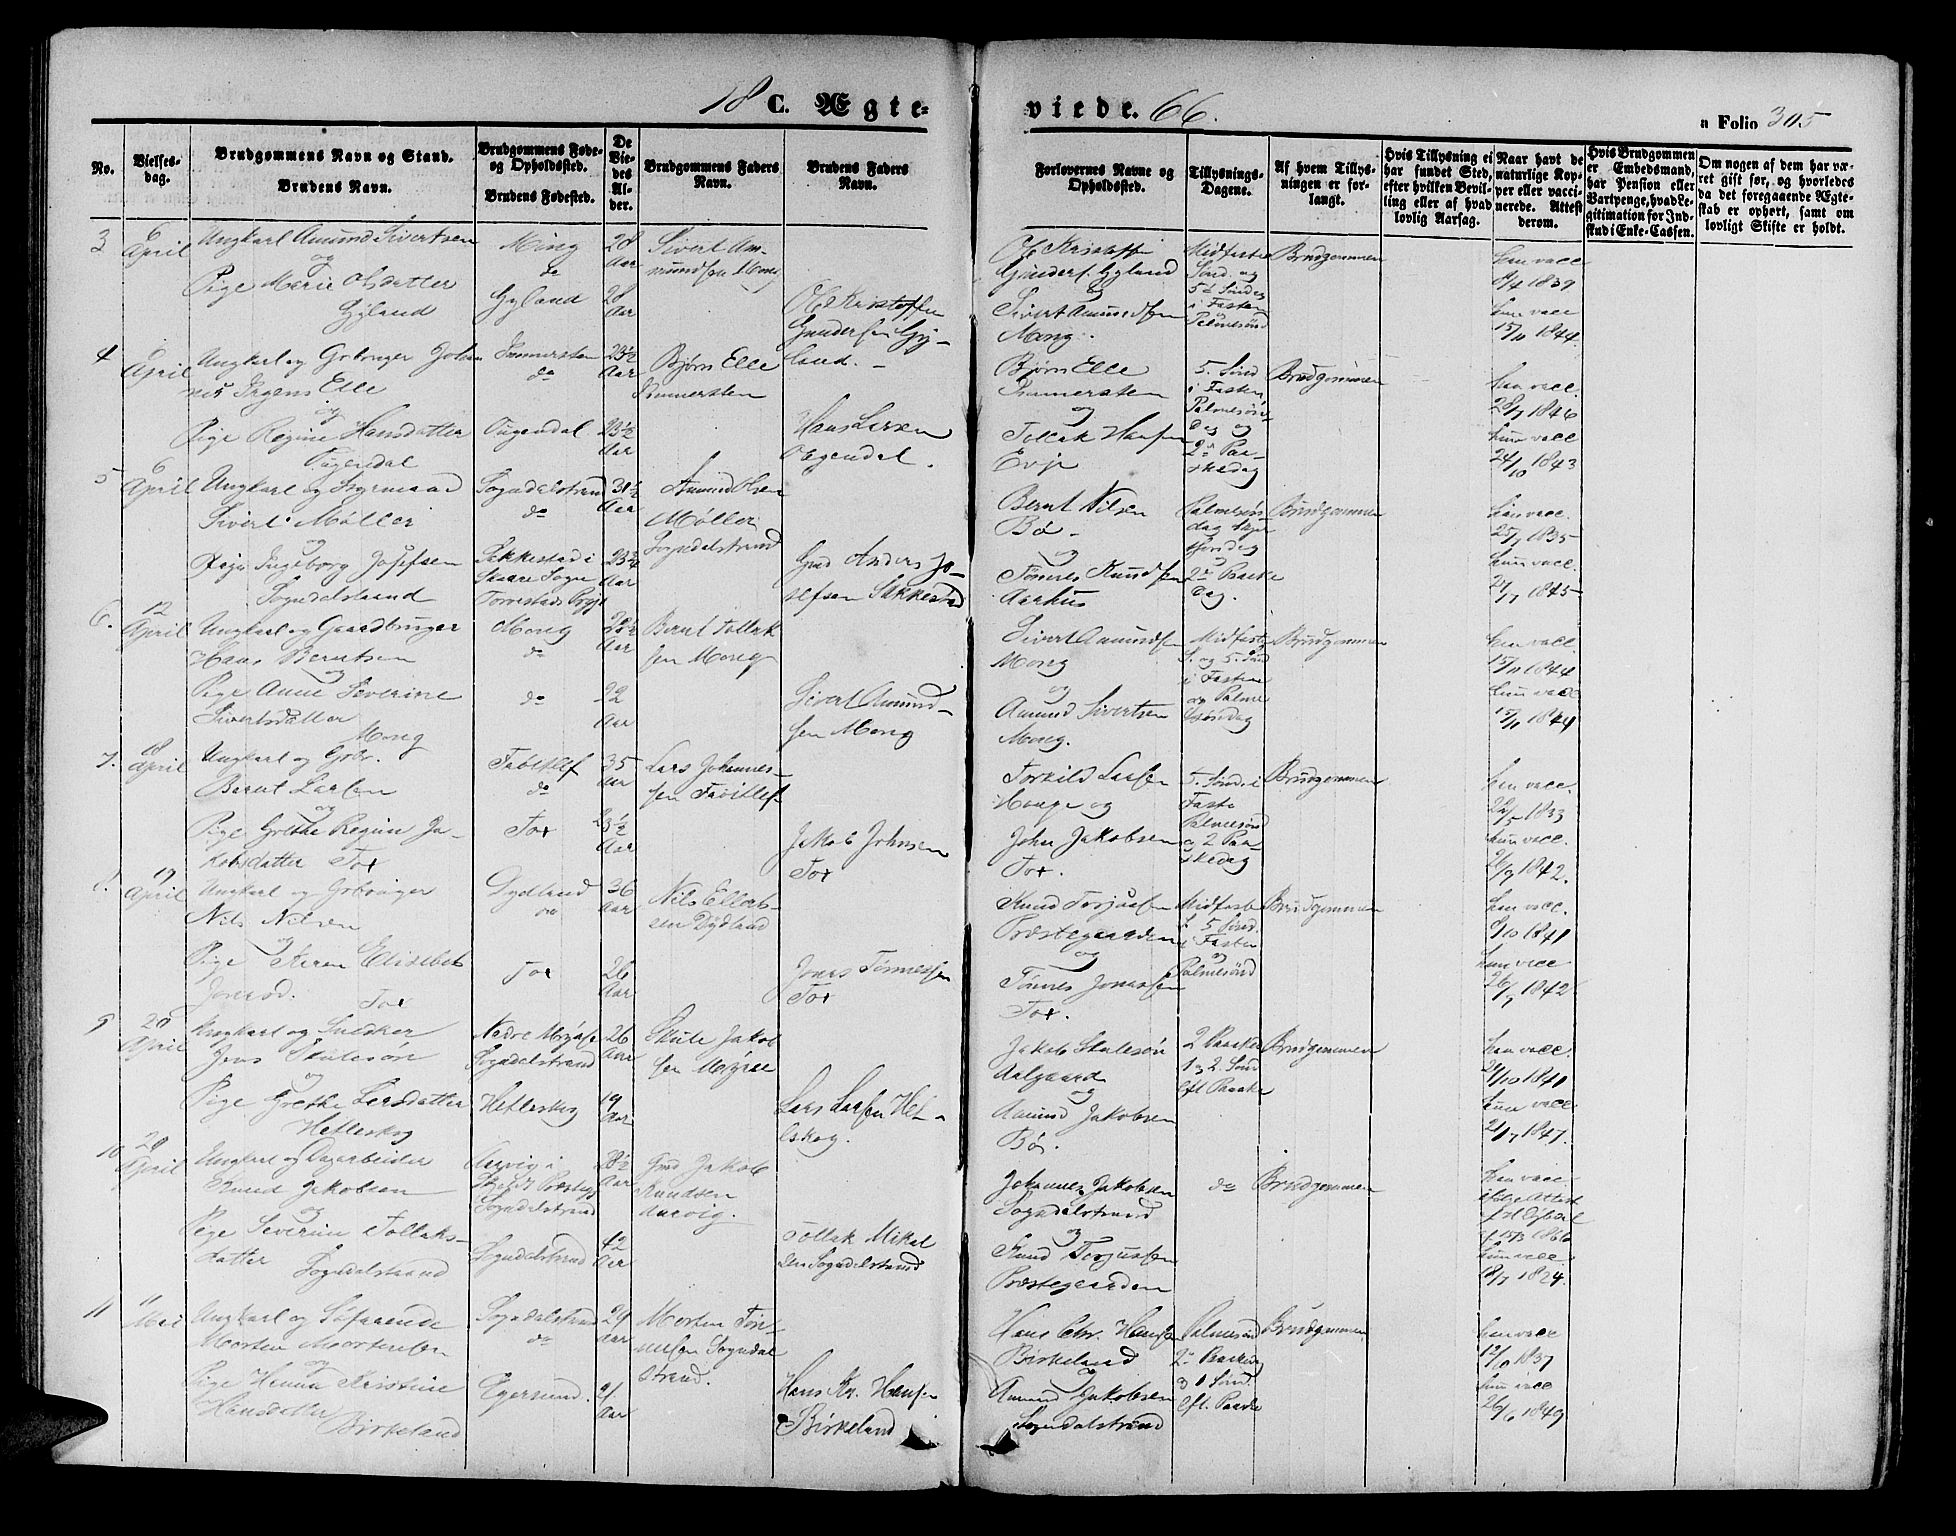 18 C. Ægte-
viede. 66.
a Folio 305
No.
Vielses-
dag.
Brudgommens Navn og Stand.
Brudens Navn.
Brudgommens Føde-
og Opholdssted.
Brudens Fødested.
De
Vie-
des
Al-
der.
Brudgommens Faders
Navn.
Brudens Faders
Navn.
Forlovernes Navne og
Opholdssted.
Tillysnings-
Dagene.
Af hvem Tillys-
ningen er for-
langt.
Hvis Tillysning ei
har fundet Sted,
efter hvilken Bevil-
ling eller af hvad
lovlig Aarsag.
Naar havt de
naturlige Kop-
per eller vacci-
nerede. Attest
derom.
Hvis Brudgommen
er Embedsmand,
har Pension eller
Vartpenge, hvad Le-
gitimation for Ind-
skud i Enke-Cassen.
Om nogen af dem har væ-
ret gift før, og hvorledes
da det foregaaende Ægte-
skab er ophørt, samt om
lovligt Skifte er holdt.
3
6
April
Ungkarl Amund Sivertsen
og
Pige Marie Olsdatter
Gyland
Mong
do
Gyland
28
Aar
28
Aar
Sivert Am-
mundsen Mong
Ole Kristoffer
Gundersen Gy-
land.
Ole Kristoffer
Gunders. Gyland
og
Sivert Amundsen
Mong.
Midfaste
Sønd. og
5te Søndag
i Fasten
Palmesønd
Brudgommen
han vacc
9/4 1839
hun vacc
15/11 1844.
4
6
April
Ungkarl og Gbbruger Johan
nes Irgens Elle
og
Pige Regine Hansdatter
do
23½
Aar
23½
Aar
Bjørn Elle
Hans Larsen
Bjørn Elle
og
Tollak Hansen
Evje
5. Sønd
i Fasten,
Palmesøn-
dag og
2den Paa-
skedag
Brudgommen
han vacc.
28/7 1846
hun vacc
24/10 1843
5
6
April
Ungkarl og Styrmand
Sivert Møller
og
Pige Ingeborg Josefsen
Sogndalstrand
Sogndalstrand
do
Sakkestad i
Skaare Sogn
Torvestads Prgj
31½
Aar
23¾
Aar
Amund Olsen
Møller
Sogndalstrand
Gmd Anders Jo-
sefsen Sakkestad
Bernt Nilsen
Bø
og
Tønnes Knudsen
Aarhus
Palmesøn
dag Skjær
thorsdag
og
2den Paaske
Dag.
Brudgommen
han vacc.
25/7 1835
hun vacc.
21/7 1845
6.
12
April
Ungkarl og Gaardbruger
Hans Berntsen
og
Pige Anne Severine
Sivertsdatter
Mong
Mong
do
do
Aar
22
Aar
Bernt Tollak
sen Mong
Sivert Amund-
sen Mong
Sivert Amundsen
Mong
og
Amund Sivertsen
Mong.
Midfaste
S. og 5. Sønd
i Fasten
og Palme
søndag
Brudgommen
han vacc.
15/11 1844
hun vacc
15/11 1844
7.
18
April
Ungkarl og Gbbr.
Bernt Larsen
og
Pige Grethe Regine Ja-
kobsdatter Tox
do
Tox
35
Aar
23½
Aar
Lars Johannes-
sen
Jakob Johnsen
Tox
Torkild Larsen
Hauge og
John Jakobsen
Tox.
5. Sønd. i
Faste
Palmesønd
og 2 Paa-
skedag
Brudgommen
han vacc.
22/5 1833
hun vacc
26/9 1842.
8.
19
April
Ungkarl og Gbbruger
Nils Nilsen
og
Pige Karen Elisabet
Jonasd. Tox
Dydland
do
Tox
36
Aar
26
Aar
Nils Ellert-
sen Dydland
Jonas Tønnessen
Tox
Knud Torjussen
Præstegaarden
og
Tønnes Jonassen
Tox.
Midfaste
S. 5 Sønd.
i Fasten
og
Palmesønd
Brudgommen
han vacc.
9/10 1841
hun vacc
26/9 1842
9
20
April
Ungkarl og Snedker
Jens Skulesøn
og
Pige Grethe Larsdatter
Hetleskog
Nedre
Sogndalstrand
Hetleskog
26
Aar
19
Aar
Skule Jakob
sen
Lars Larsen Het-
leskog.
Jakob Skulesøn
Aalgaard
og
Amund Jakobsen
Bø.
2 Paaske
1 og 2. Sønd
Eft. Paaske
Brudgommen
han vacc.
21/10 1841
hun vacc
21/7 1847.
10
20
April
Ungkarl og Dagarbeider
Knud Jakobsen
og
Pige Severine Tollaks-
datter
Sogndalstrand
Aarvig i
Sogndalstrand
Sogndalstrand
28½
Aar
42
Aar
Gmd Jakob
Knudsen
Aarvig.
Tollak Mikal
sen Sogndalstrand
Johannes Jakobsen
Sogndalstrand
og
Knud Torjussen
Præstegaarden
do
Brudgommen
han vacc.
ifølge Attest
hun vacc
18/7 1824.
11
11
Mai
Ungkarl og Søfarende
Morten Mortensen
og
Pige Hanna Kristine
Hansdatter
Birkeland
Sogndalstrand
do
Egersund.
29
Aar
21
Aar
Morten Tøn-
nessen Sogndal
strand.
Hans Kr. Hansen
Birkeland
Hans Chr. Hansen
Birkeland
og
Amund Jakobsen
Sogndalstrand
Palmesønd
2den Paaskedag
og 1 Sønd.
Eft. Paaske
Brudgommen
han vacc
12/10 1837
hun vacc
26/6 1849